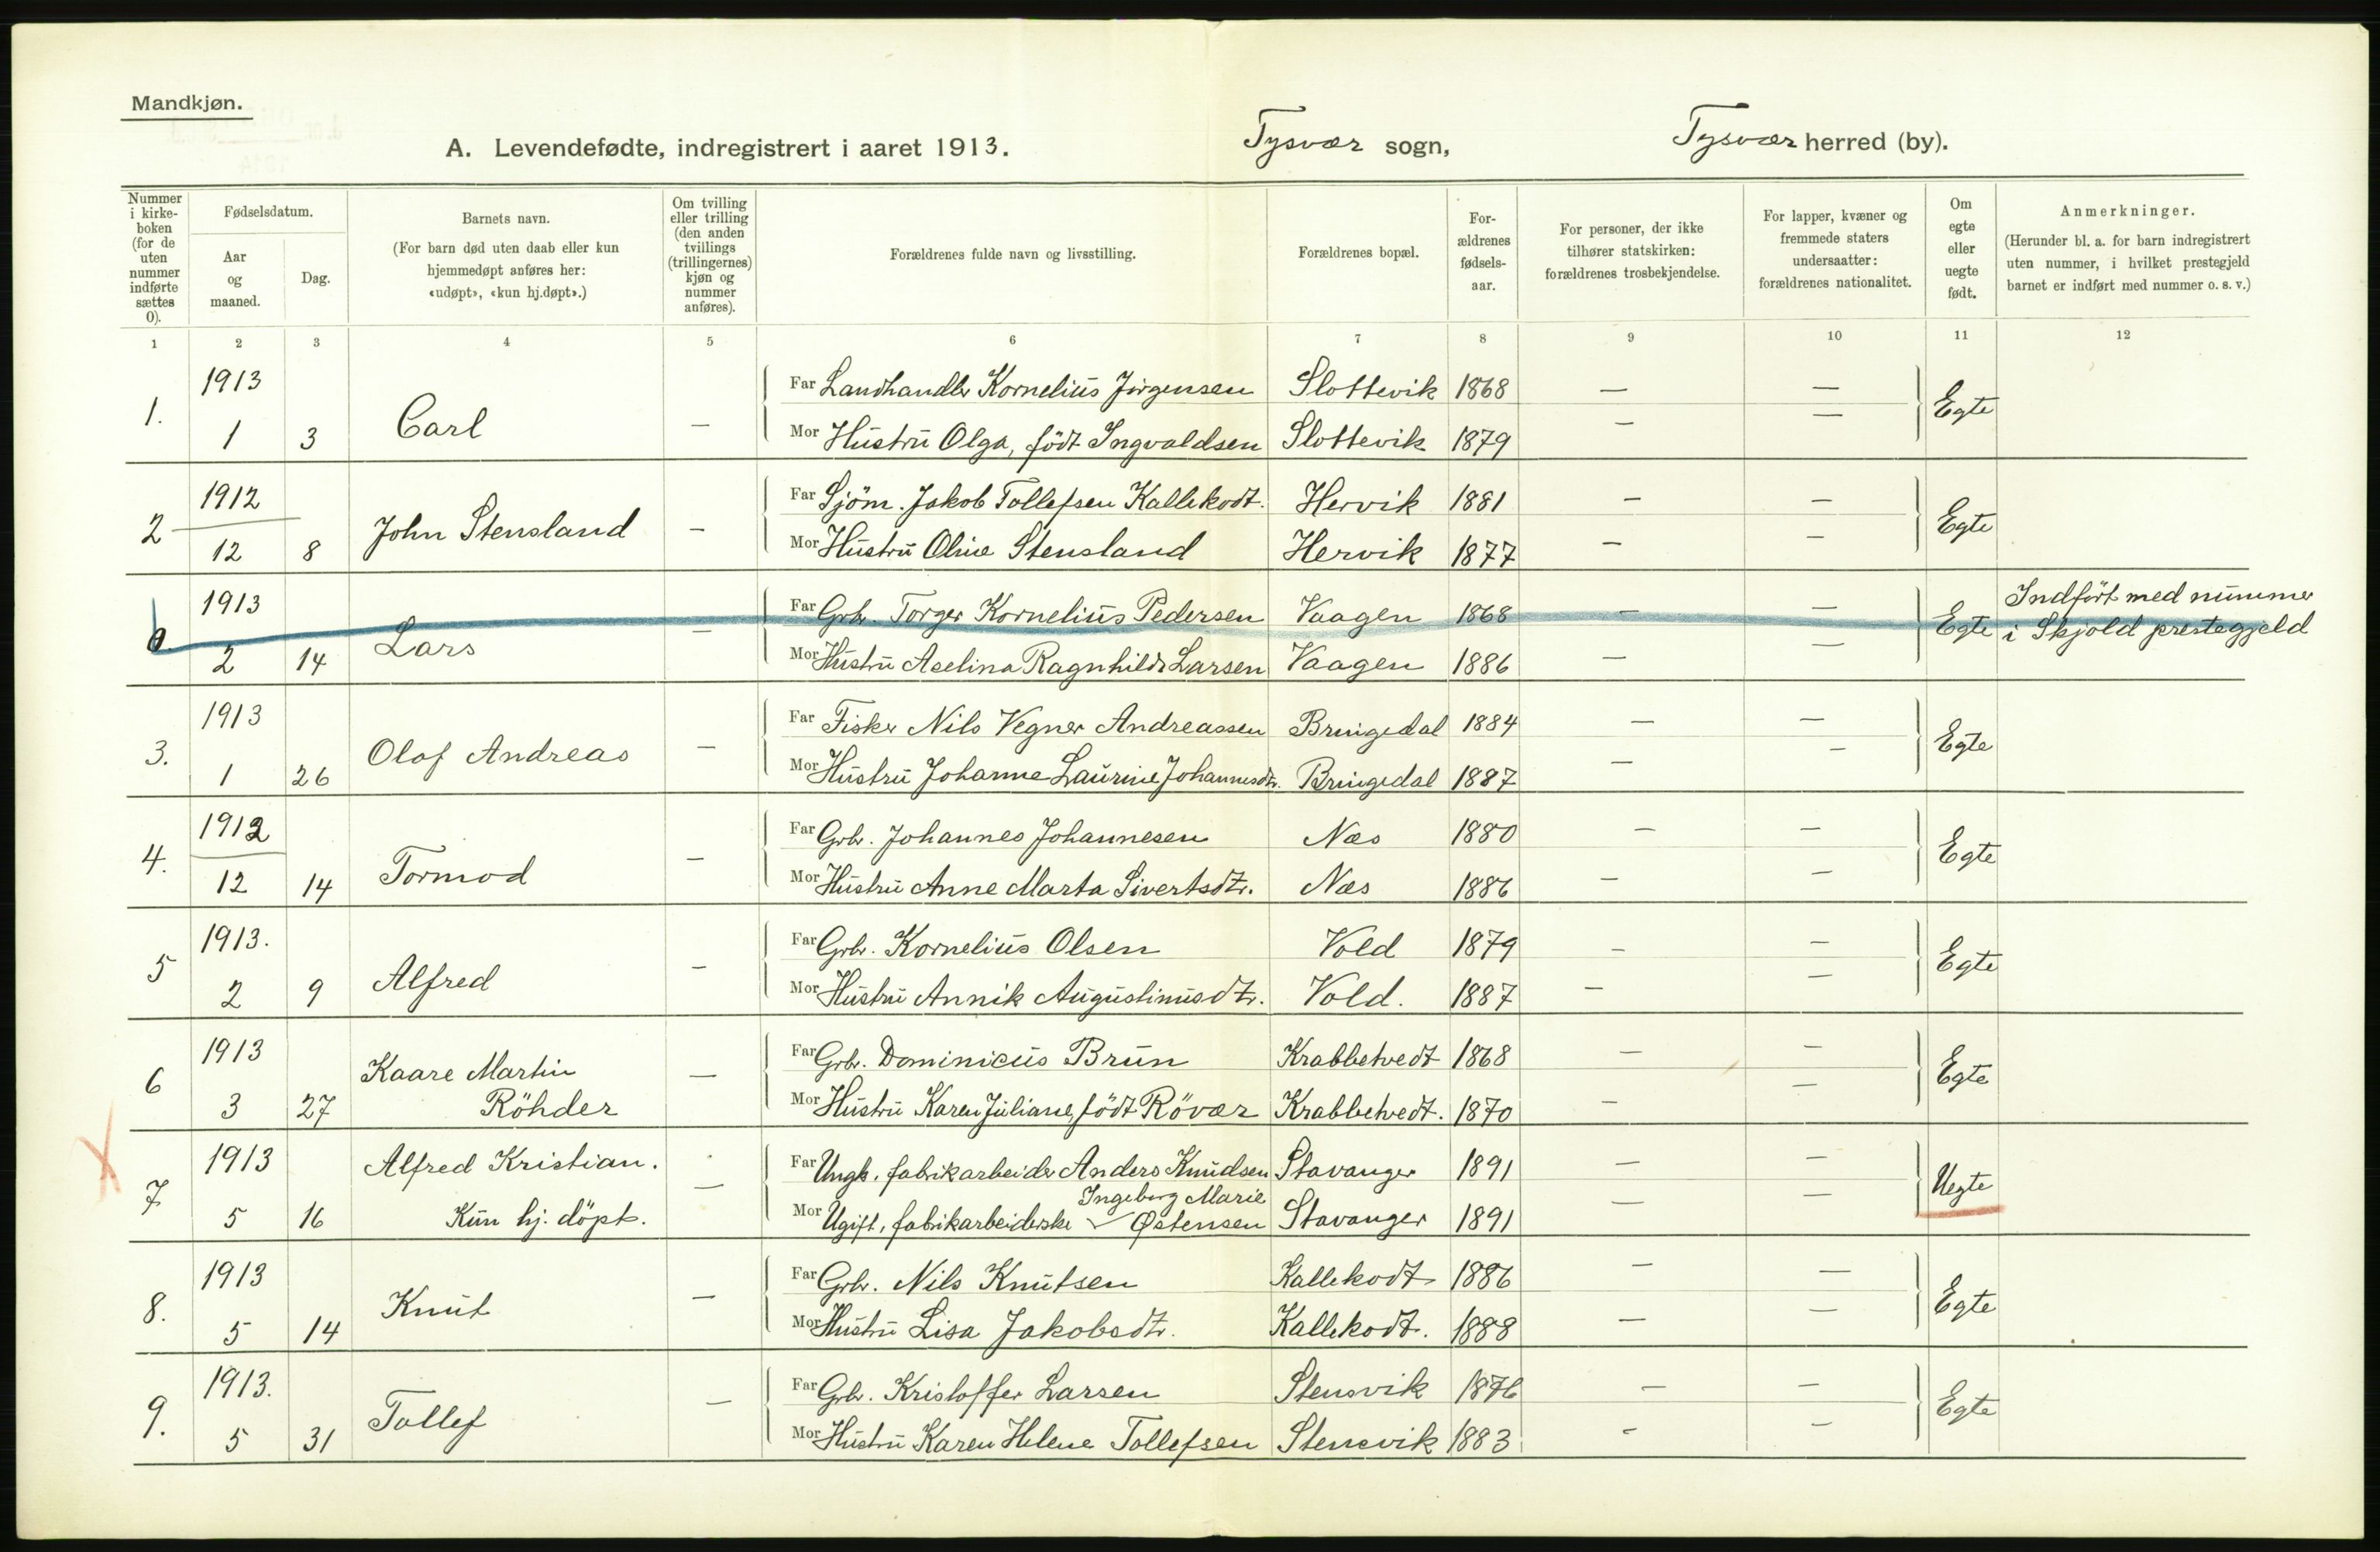 Mandkjøn.
A. Levendefødte, indregistrert i aaret 1913. Tysvær sogn, Tysvær herred (by).
Nummer i kirke-boken (for de uten nummer indførte sættes 0).
Fødselsdatum.
Aar og maaned.
Dag.
Barnets navn.
(For barn død uten daab eller kun hjemmedøpt anføres her: «udøpt», «kun hj.døpt».)
Om tvilling eller trilling (den anden tvillings (trillingernes) kjøn og nummer anføres).
Forældrenes fulde navn og livsstilling.
Forældrenes bopæl.
For-ældrenes fødsels-aar.
For personer, der ikke tilhører statskirken: forældrenes trosbekjendelse.
For lapper, kvæner og fremmede staters undersaatter: forældrenes nationalitet.
Om egte eller uegte født.
Anmerkninger.
(Herunder bl. a. for barn indregistrert uten nummer, i hvilket prestegjeld barnet er indført med nummer o. s. v.)
1 2 3 4 5 6 7 8 9 10 11 12
1. 1913 1 3 Carl — Far Landhandler Kornelius Jørgensen Slottevik 1868 — — Egte
Mor Hustru Olga, født Ingvaldsen Slottevik 1879 — —
2 1912 12 8 John Stensland — Far Sjöm. Jakob Tollefsen Kallekodt. Hervik 1881 — — Egte
Mor Hustru Oline Stensland Hervik 1877 — —
0. 1913 2 14 Lars — Far Grbr. Torger Kornelius Pedersen Vaagen 1868 — — Egte Indført med nummer i Skjold prestegjeld
Mor Hustru Aselina Ragnhilds Larsen Vaagen 1886 — —
3. 1913 1 26 Olaf Andreas — Far Fisker Nils Vegner Andreassen Bringedal 1884 — — Egte
Mor Hustru Johanne Laurine Johannesdtr. Bringedal 1887 — —
4. 1912 12 14 Tormod — Far Grbr. Johannes Johannesen Næs 1880 — — Egte
Mor Hustru Anne Marta Sivertsdtr. Næs 1886 — —
5 1913. 2 9 Alfred — Far Grbr. Kornelius Olsen Vold 1879 — — Egte
Mor Hustru Annik Augustinusdtr. Vold. 1887 — —
6 1913 3 27 Kaare Martin Röhder — Far Grbr. Dominicus Brun Krabbetvedt 1868 — — Egte
Mor Hustru Karen Juliane, født Rövær Krabbetvedt. 1870 — —
7 1913 5 16 Alfred Kristian. Kun hj. döpt. — Far Ungk. fabrikarbeider Anders Knudsen Stavanger 1891 — — Uegte
Mor Ugift, fabrikarbeiderske Ingeborg Marie Østensen Stavanger 1891 — —
8. 1913 5 14 Knut — Far Grbr. Nils Knutsen Kallekodt 1886 — — Egte
Mor Hustru Lisa Jakobsdtr. Kallekodt. 1888 — —
9. 1913. 5 31 Tollef — Far Grbr. Kristoffer Larsen Stensvik 1876 — — Egte
Mor Hustru Karen Helene Tollefsen Stensvik 1883 — —